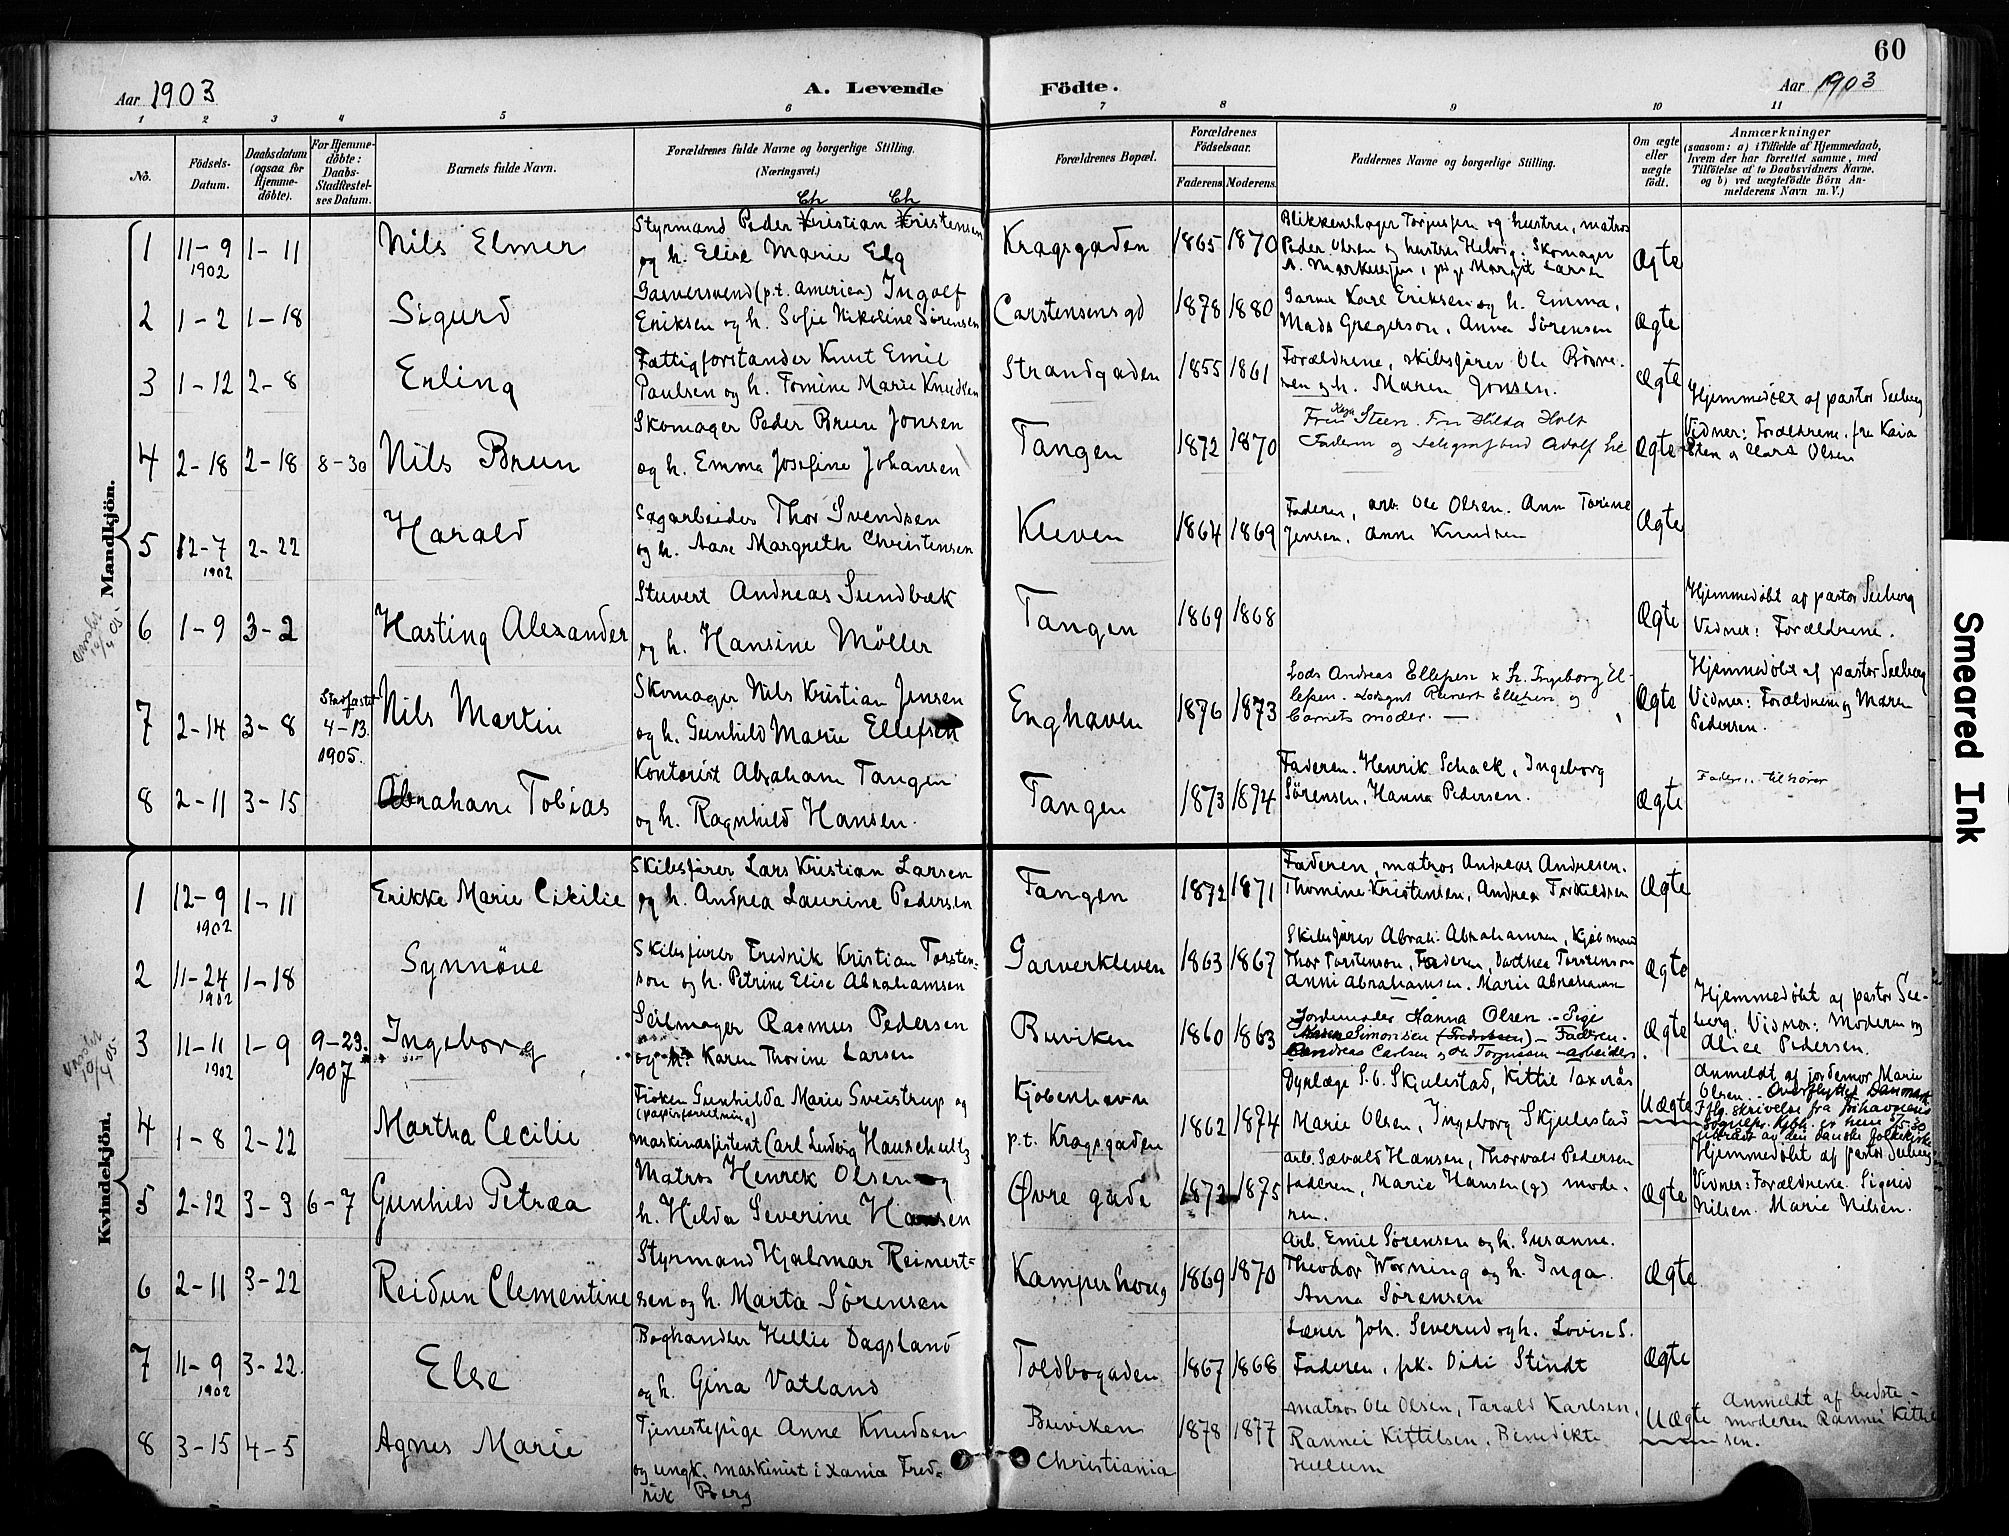 60
Aar 1903
A. Levende Födte.
Aar 1903
1 2 3 4 5 6 7 8 9 10 11
No.
Födsels-Datum.
Daabsdatum (ogsaa for Hjemme-döbte).
For Hjemme-döbte: Daabs-Stadfæstel-ses Datum.
Barnets fulde Navn.
Forældrenes fulde Navne og borgerlige Stilling.
(Næringsvei.)
Forældrenes Bopæl.
Forældrenes Födselsaar.
Faderens. Moderens.
Faddernes Navne og borgerlige Stilling.
Om ægte eller uægte födt.
Anmærkninger
(saasom: a) i Tilfælde af Hjemmedaab,
hvem der har forrettet samme, med
Tilföielse af to Daabsvidners Navne,
og b) ved uægtefödte Börn An-
melderens Navn m. V.)
Ch Ch
Mandkjön.
1 11-9 1902 1-11 Nils Elmer
Styrmand Peder Kristian Kristensen
og h. Elise Marie Elg
Kragsgaden 1865 1870
Blikkenslager Torjussen og hustru, matros
Peder Olsen og hustru Helvig. Skomager
A. Markussen, pige Margit Larsen
Ægte
2 1-2 1-18 Sigurd
Garversvend (p.t. America) Ingolf
Eriksen og h. Sofie Nikoline Sørensen
Carstensens gd 1878 1880
Garver Karl Eriksen og h. Emma,
Mads Gregersen, Anna Sørensen
Ægte
3 1-12 2-8 Erling
Fattigforstander Knut Emil
Paulsen og h. Tomine Marie Knudsen
Strandgaden 1855 1861
Forældrene, skibsfører Ole
og h. Maren Jonsen.
Ægte
4 2-18 2-18 8-30 Nils Brun
Skomager Peder Brun Jonsen
og h. Emma Josefine Johansen
Tangen 1872 1870
Steen. Fru Hilda Holt
Faderen og telegrafbud Adolf
Ægte
Hjemmedøbt af pastor Seeberg
Vidner: Forældrene, fru Kaia
Sten og Olsen
5 12-7 1902 2-22 Harald
Sagarbeider Thor Svendsen
og h. Aase Margreth Christensen
Kleven 1864 1869
Faderen, arb. Ole Olsen. Ann Torine
Jensen, Anne Knudsen
Ægte
6 1-9 3-2 Hasting Alexander
Stuvert Andreas Sundbæk
og h. Hansine Møller
Tangen 1869 1868
Ægte
Hjemmedøbt af pastor Seeberg
Vidner: Forældrene.
7 2-14 3-8 Stadfæstet 4-13. 1905. Nils Martin
Skomager Nils Kristian Jensen
og h. Gunhild Marie Ellefsen
Enghaven 1876 1873
Lods Andreas Ellefsen & Fr. Ingeborg El-
lefsen. Reinert Ellefsen og
barnets moder. —
Ægte
Hjemmedøbt af pastor Seeberg
Vidner: Forældrene og Maren
Pedersen.
8 2-11 3-15 Abraham Tobias
Kontorist Abraham Tangen
og h. Ragnhild Hansen.
Tangen 1873 1874
Faderen. Henrik Schack, Ingeborg
Sørensen, Hanna Pedersen.
Ægte
tilhører
Kvindekjön.
1 12-9 1902 1-11 Erikke Marie Cicilie
Skibsfører Lars Kristian Larsen
og h. Andrea Laurine Pedersen
Tangen 1872 1871
Faderen, matros Andreas Andresen.
Thomine Kristensen, Andrea Torkildsen
Ægte
2 11-24 1902 1-18 Synnöve
Skibsfører Fredrik Kristian Torsten-
son og h. Petrine Elise Abrahamsen
Garverkleven 1863 1867
Skibsfører Abrah. Abrahamsen, Kjøbmand
Thor Torstenson, Faderen, Dorthea Torstenson
Anni Abrahamsen. Marie Abrahamsen
Ægte
3 11-11 1902 1-9 9-23. 1907 Ingeborg
Seilmager Rasmus Pedersen
og h. Karen Thorine Larsen
Buviken 1860 1863
Jordemoder Hanna Olsen - Pige
Simonsen (Fredriksen) - Faderen.
Andreas Carlsen og Ole Torjussen - arbeider
Ægte
Hjemmedøbt af pastor See-
berg. Vidner: Moderen og
Alice Pedersen.
4 1-8 2-22 Martha Cecilie
Frøken Gunhilda Marie Sveistrup og
(papirforretning)
maskinassistent Carl Ludvig Hauschultz
Kjøbenhavn
p.t. Kragsgaden 1862 1874
Dyrlæge S. O. Skjulestad, Kittil Taxeraas
Marie Olsen, Ingeborg Skjulestad
Uægte
Anmeldt af jordemor Marie
Olsen. Overflyttet Danmark
Iflg. skrivelse fra
5 2-12 3-3 6-7 Gunhild Petræa
Matros Henrck Olsen og
h. Hilda Severine Hansen
Øvre gade 1872 1875
arb. Sævald Hansen, Thorvald Pedersen
faderen, Marie Hansen (g) mode-
ren.
Ægte
Hjemmedøbt af pastor Seeberg
Vidner: Forældrene. Sigrid
Nilsen. Marie Nilsen.
6 2-11 3-22 Reidun Clementine
Styrmand Hjalmar Reinert-
sen og h. Marta Sørensen
Kamperhoug 1869 1870
Arb. Emil Sørensen og h. Susanne.
Theodor Wørning og h. Inga.
Anna Sørensen
Ægte
7 11-9 1902 3-22. Else
Boghandler Hellie Dagsland
og h. Gina Vatland
Toldbogaden 1867 1868
Lærer Joh. Severud og h. Lovise S.
Faderen, frk. Didi Stindt
Ægte
8 3-15 4-5 Agnes Marie
Tjenestepige Anne Knudsen
og ungk. maskinist i Xania Fred-
rik Berg
Buviken
Christiania 1878 1877
matros Ole Olsen, Tarald Karlsen,
Rannei Kittilsen, Benedikte
Hellum
Uægte
Anmeldt af bedste-
moderen Rannei Kittil-
sen.
Smeared Ink